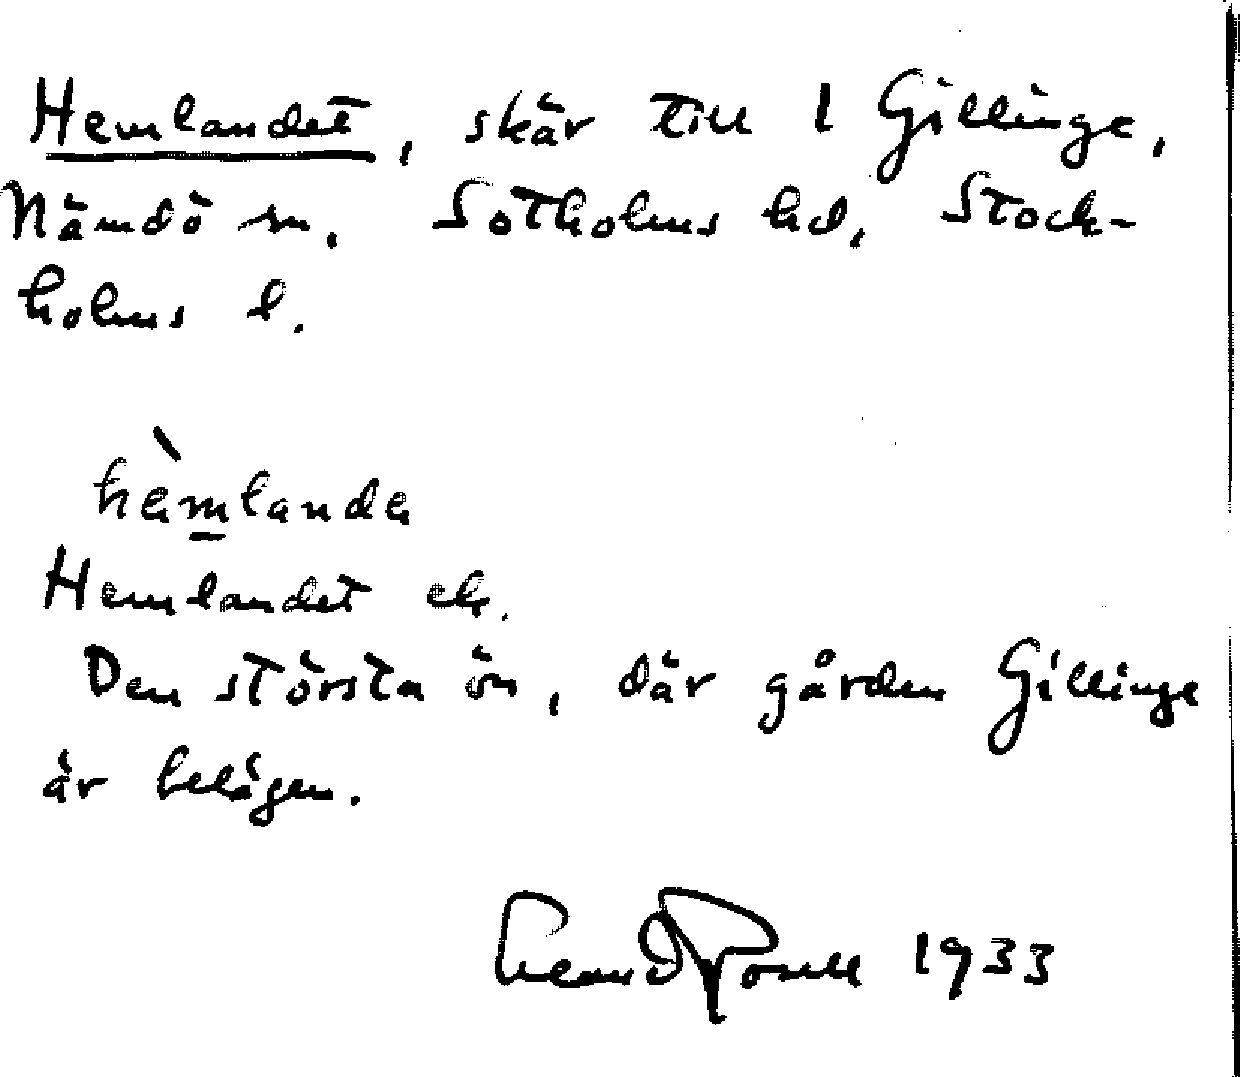 Hemlandet, skär till 1 Gillinge,
Nämdö sn. Sotholms hd, Stock-
holms l.
hèmlanda
Hemlandet ek.
Den största ön, där gården Gillinge
är belägen.
1933